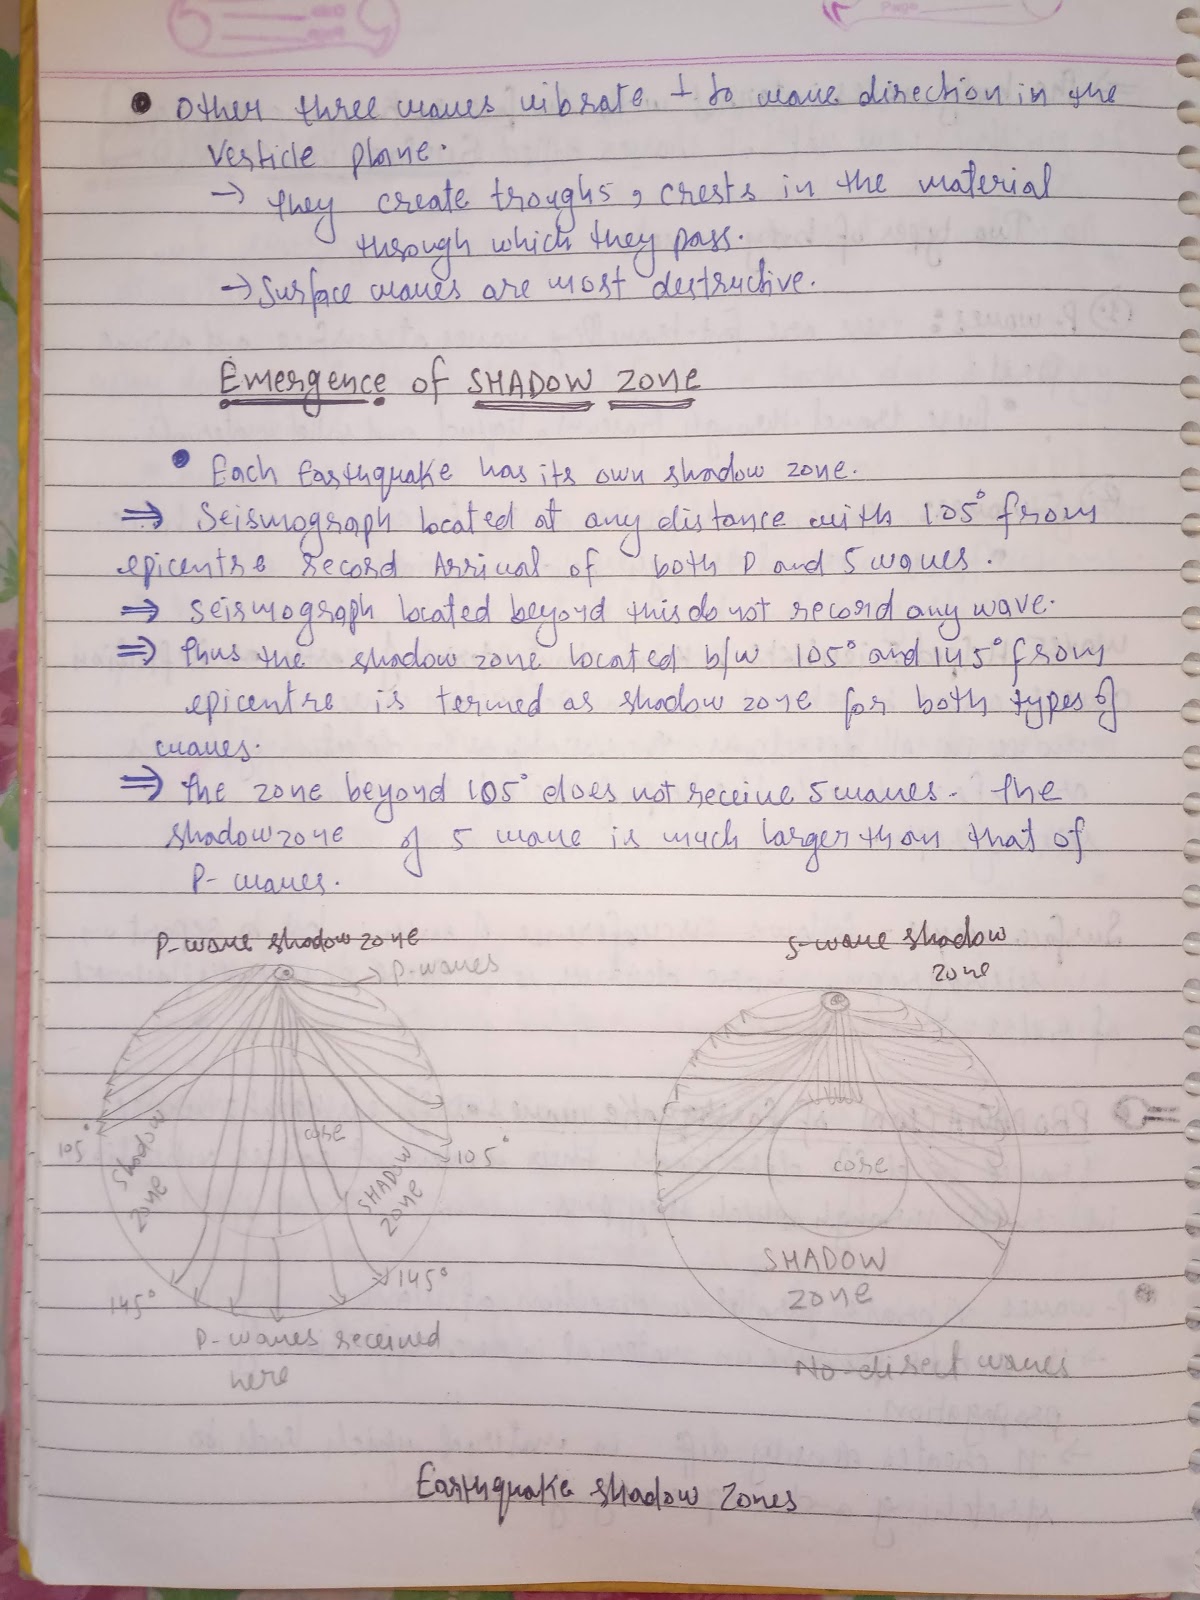 Page
• Other three waves vibrate ⊥ to wave direction in the
Verticle plane.
→ they create troughs, crests in the material
through which they pass.
→ Surface waves are most destructive.
Emergence of SHADOW ZONE
• Each Earthquake has its own shadow zone.
⇒ Seismograph located at any distance with 105° from
epicentre record Arrival of both P and S waves.
⇒ Seismograph located beyond this do not record any wave.
⇒ thus the shadow zone located b/w 105° and 145° from
epicentre is termed as shadow zone for both types of
waves.
⇒ the zone beyond 105° does not receive S waves. The
shadow zone of S wave is much larger than that of
P- waves.
P-wave shadow zone
→ P-waves
core
105°
105°
Shadow
zone
SHADOW
ZONE
145°
145°
P-waves received
here
S-wave shadow
zone
core
SHADOW
ZONE
No-direct waves
Earthquake shadow zones